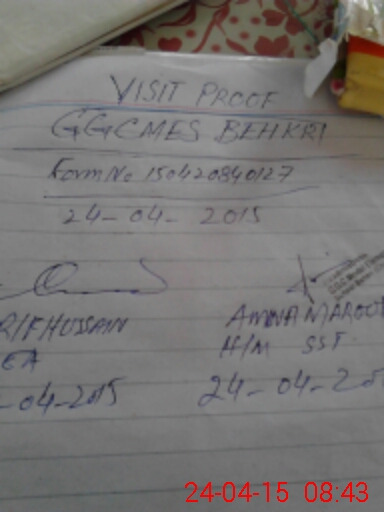 VISIT PROOF
GGCMES BEHKRI
Form No 150420840127
24-04-2015
RIF HUSSAIN AMNA MAROO
EA H/M SST
-04-2015 24-04-20
24-04-15 08:43